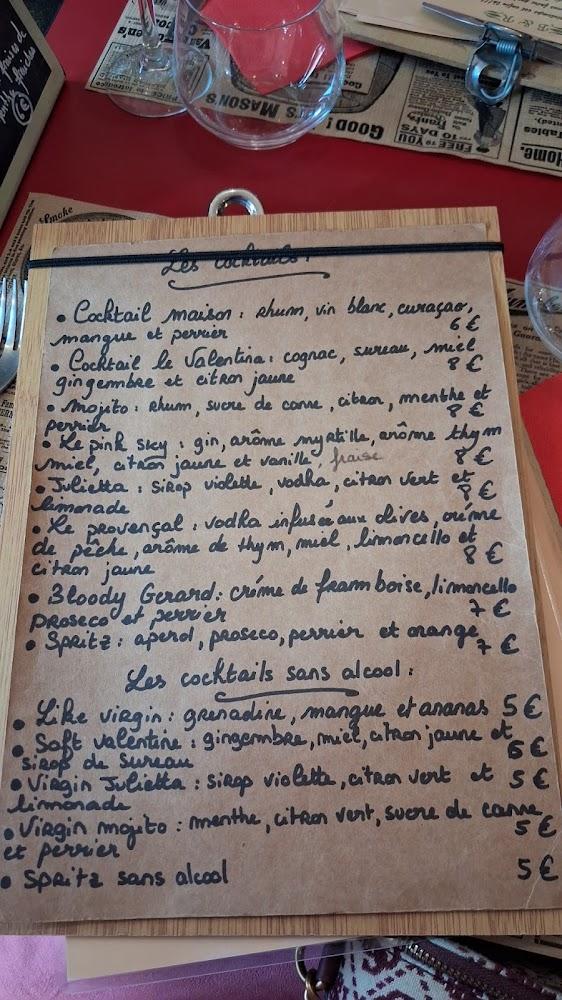 Les cocktails :
• Cocktail maison : Rhum, vin blanc, curaçao,
mangue et perrier 6 €
• Cocktail le Valentina : cognac, sureau, miel
gingembre et citron jaune 8 €
• Mojito : Rhum, sucre de canne, citron, menthe et
perrier 8 €
• Le pink sky : gin, arôme myrtille, arôme thym
miel, citron jaune et vanille, fraise 8 €
• Julietta : sirop violette, vodka, citron vert et
limonade 8 €
• Le provençal : vodka infusée aux olives, créme
de pêche, arôme de thym, miel, limoncello et
citron jaune 8 €
• Bloody Gerard : créme de framboise, limoncello
proseco et perrier 7 €
• Spritz : aperol, proseco, perrier et orange 7 €
Les cocktails sans alcool :
• Like virgin : grenadine, mangue et ananas 5 €
• Soft valentine : gingembre, miel, citron jaune et
sirop de sureau 5 €
• Virgin Julietta : sirop violette, citron vert et 5 €
limonade
• Virgin mojito : menthe, citron vert, sucre de canne
et perrier 5 €
• Spritz sans alcool 5 €
GOOD!
'S MASON'S
FREE TO YOU
10 DAYS
Home.
Tables
Smoke